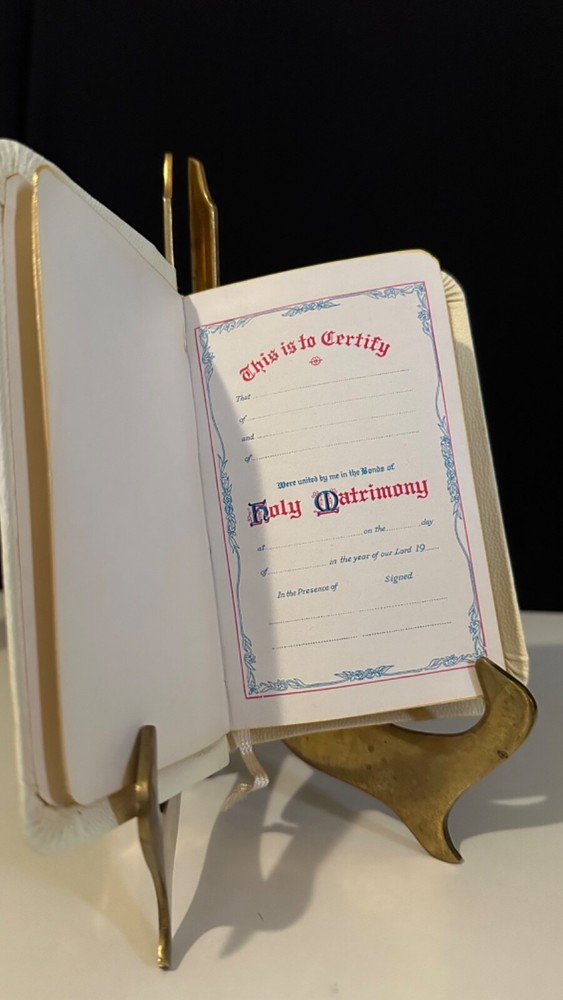 This is to Certify
That
of
and
of
Were united by me in the Bonds of
Holy Matrimony
at on the day
of in the year of our Lord 19
In the Presence of Signed